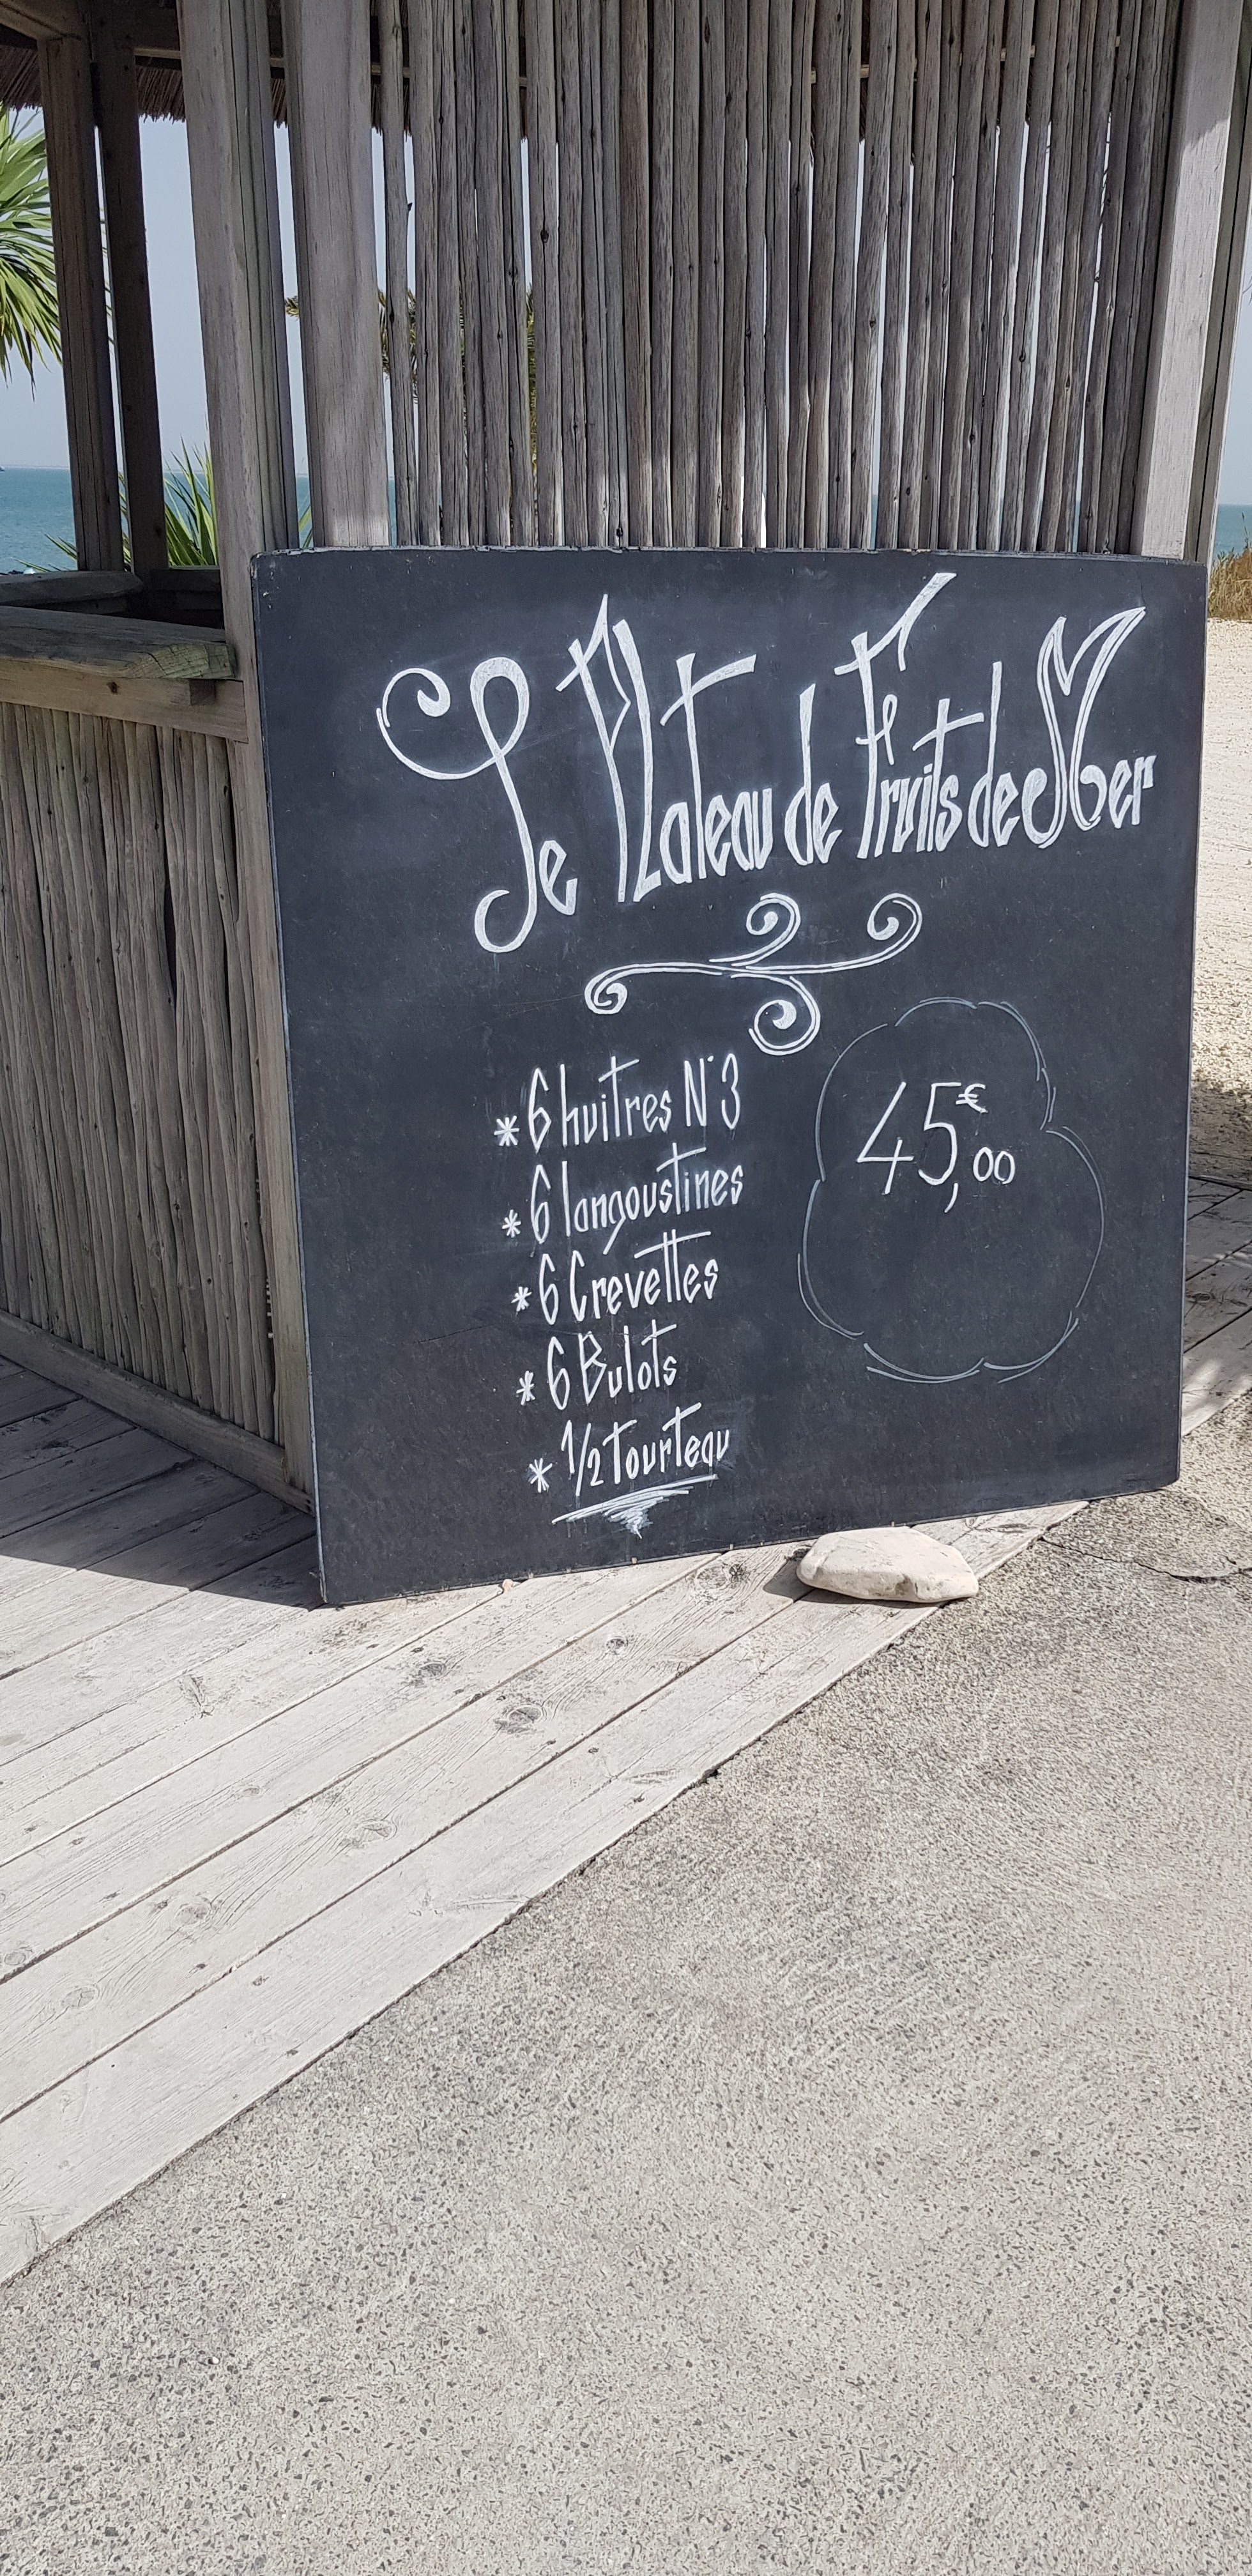 Le Plateau de Fruits de Mer
* 6 huitres N°3
45,00€
* 6 langoustines
* 6 Crevettes
* 6 Bulots
* 1/2 tourteau